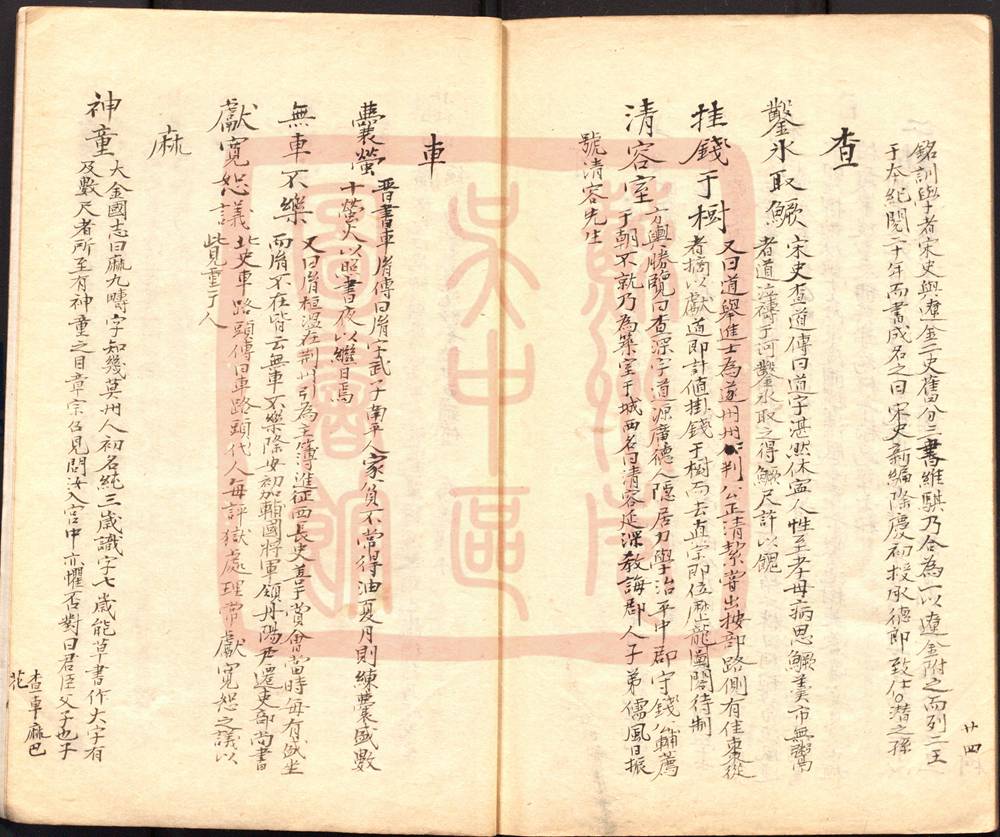 銘訓學者宋史與遼金二史舊分三書維騏乃合為一以遼金附之而列二王
于本紀閱二十年而書成名之曰宋史新編隆慶初授承德郎致仕○潛之孫
廿四
查
鑿氷取鱖
宋史查道傳曰道字湛然休寧人性至孝母病思鱖羹市無鬻
者道泣禱于河鑿氷取之得鱖尺許以饋
挂錢于樹
又曰道舉進士為遂州州判公正清潔嘗出按部路側有佳棗從
者摘以獻道即計值掛錢于樹而去真宗即位歷龍圖閣待制
清容室
方輿勝覽曰查深字道源廣德人隱居力學治平中郡守錢公輔薦
于朝不就乃為築室于城西名曰清容延深教誨郡人子弟儒風日振
號清容先生
車
囊螢
晋書車胤傳曰胤字武子南平人家貧不常得油夏月則練囊盛數
十螢火以照書夜以繼日焉
無車不樂
又曰胤桓溫在荆州引為主簿進征西長史善于賞會當時每有盛坐
而胤不在皆云無車不樂隆安初加輔國將軍領丹陽尹遷吏部尚書
獻寬恕議
北史車路頭傳曰車路頭代人每評獄處理常獻寬恕之議以
此見重于人
麻
神童
大金國志曰麻九疇字知幾莫州人初名純三歲識字七歲能草書作大字有
及數尺者所至有神童之目章宗召見問汝入宮中亦懼否對曰君臣父子也子
查車麻巴
花